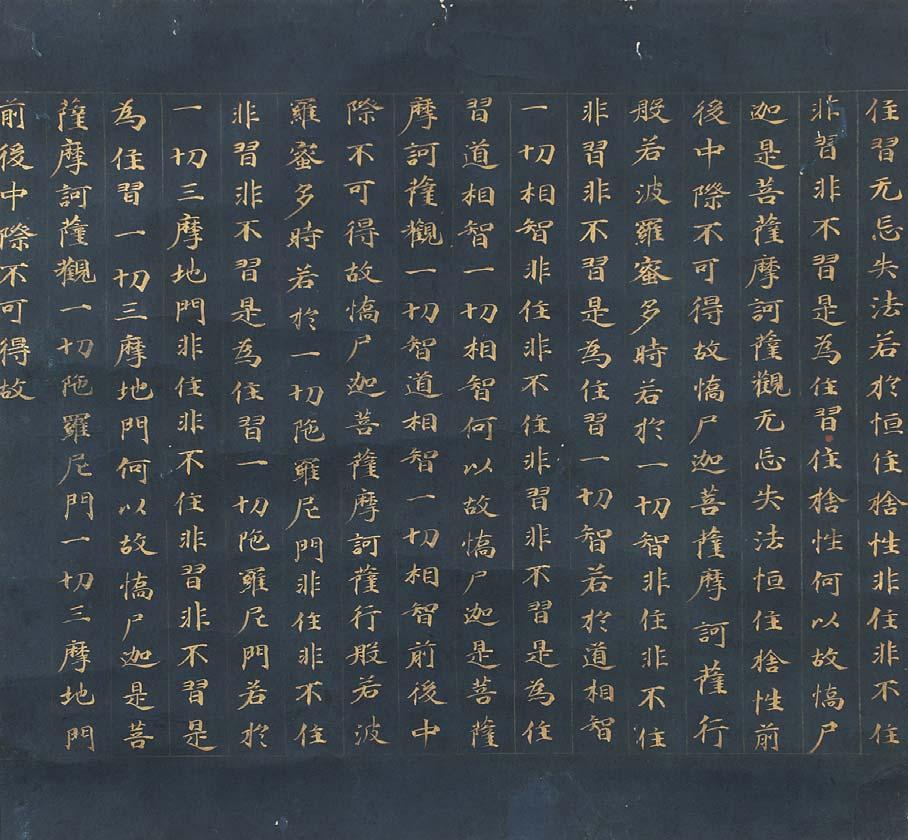 住習无忘失法若於恒住捨性非住非不住
非習非不習是為住習住捨性何以故憍尸
迦是菩薩摩訶薩觀无忘失法恒住捨性前
後中際不可得故憍尸迦菩薩摩訶薩行
般若波羅蜜多時若於一切智非住非不住
非習非不習是為住習一切智若於道相智
一切相智非住非不住非習非不習是為住
習道相智一切相智何以故憍尸迦是菩薩
摩訶薩觀一切智道相智一切相智前後中
際不可得故憍尸迦菩薩摩訶薩行般若波
羅蜜多時若於一切陀羅尼門非住非不住
非習非不習是為住習一切陀羅尼門若於
一切三摩地門非住非不住非習非不習是
為住習一切三摩地門何以故憍尸迦是菩
薩摩訶薩觀一切陀羅尼門一切三摩地門
前後中際不可得故